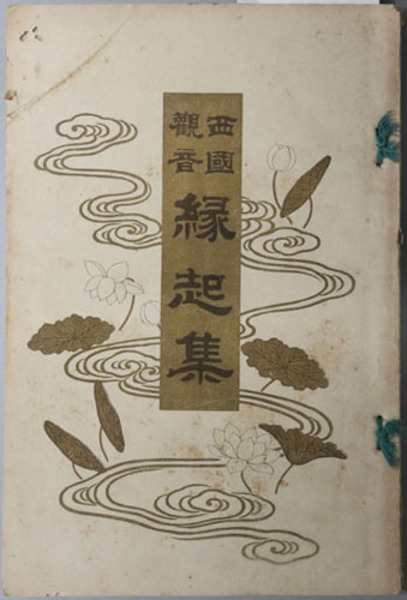 西國
觀音
縁起集